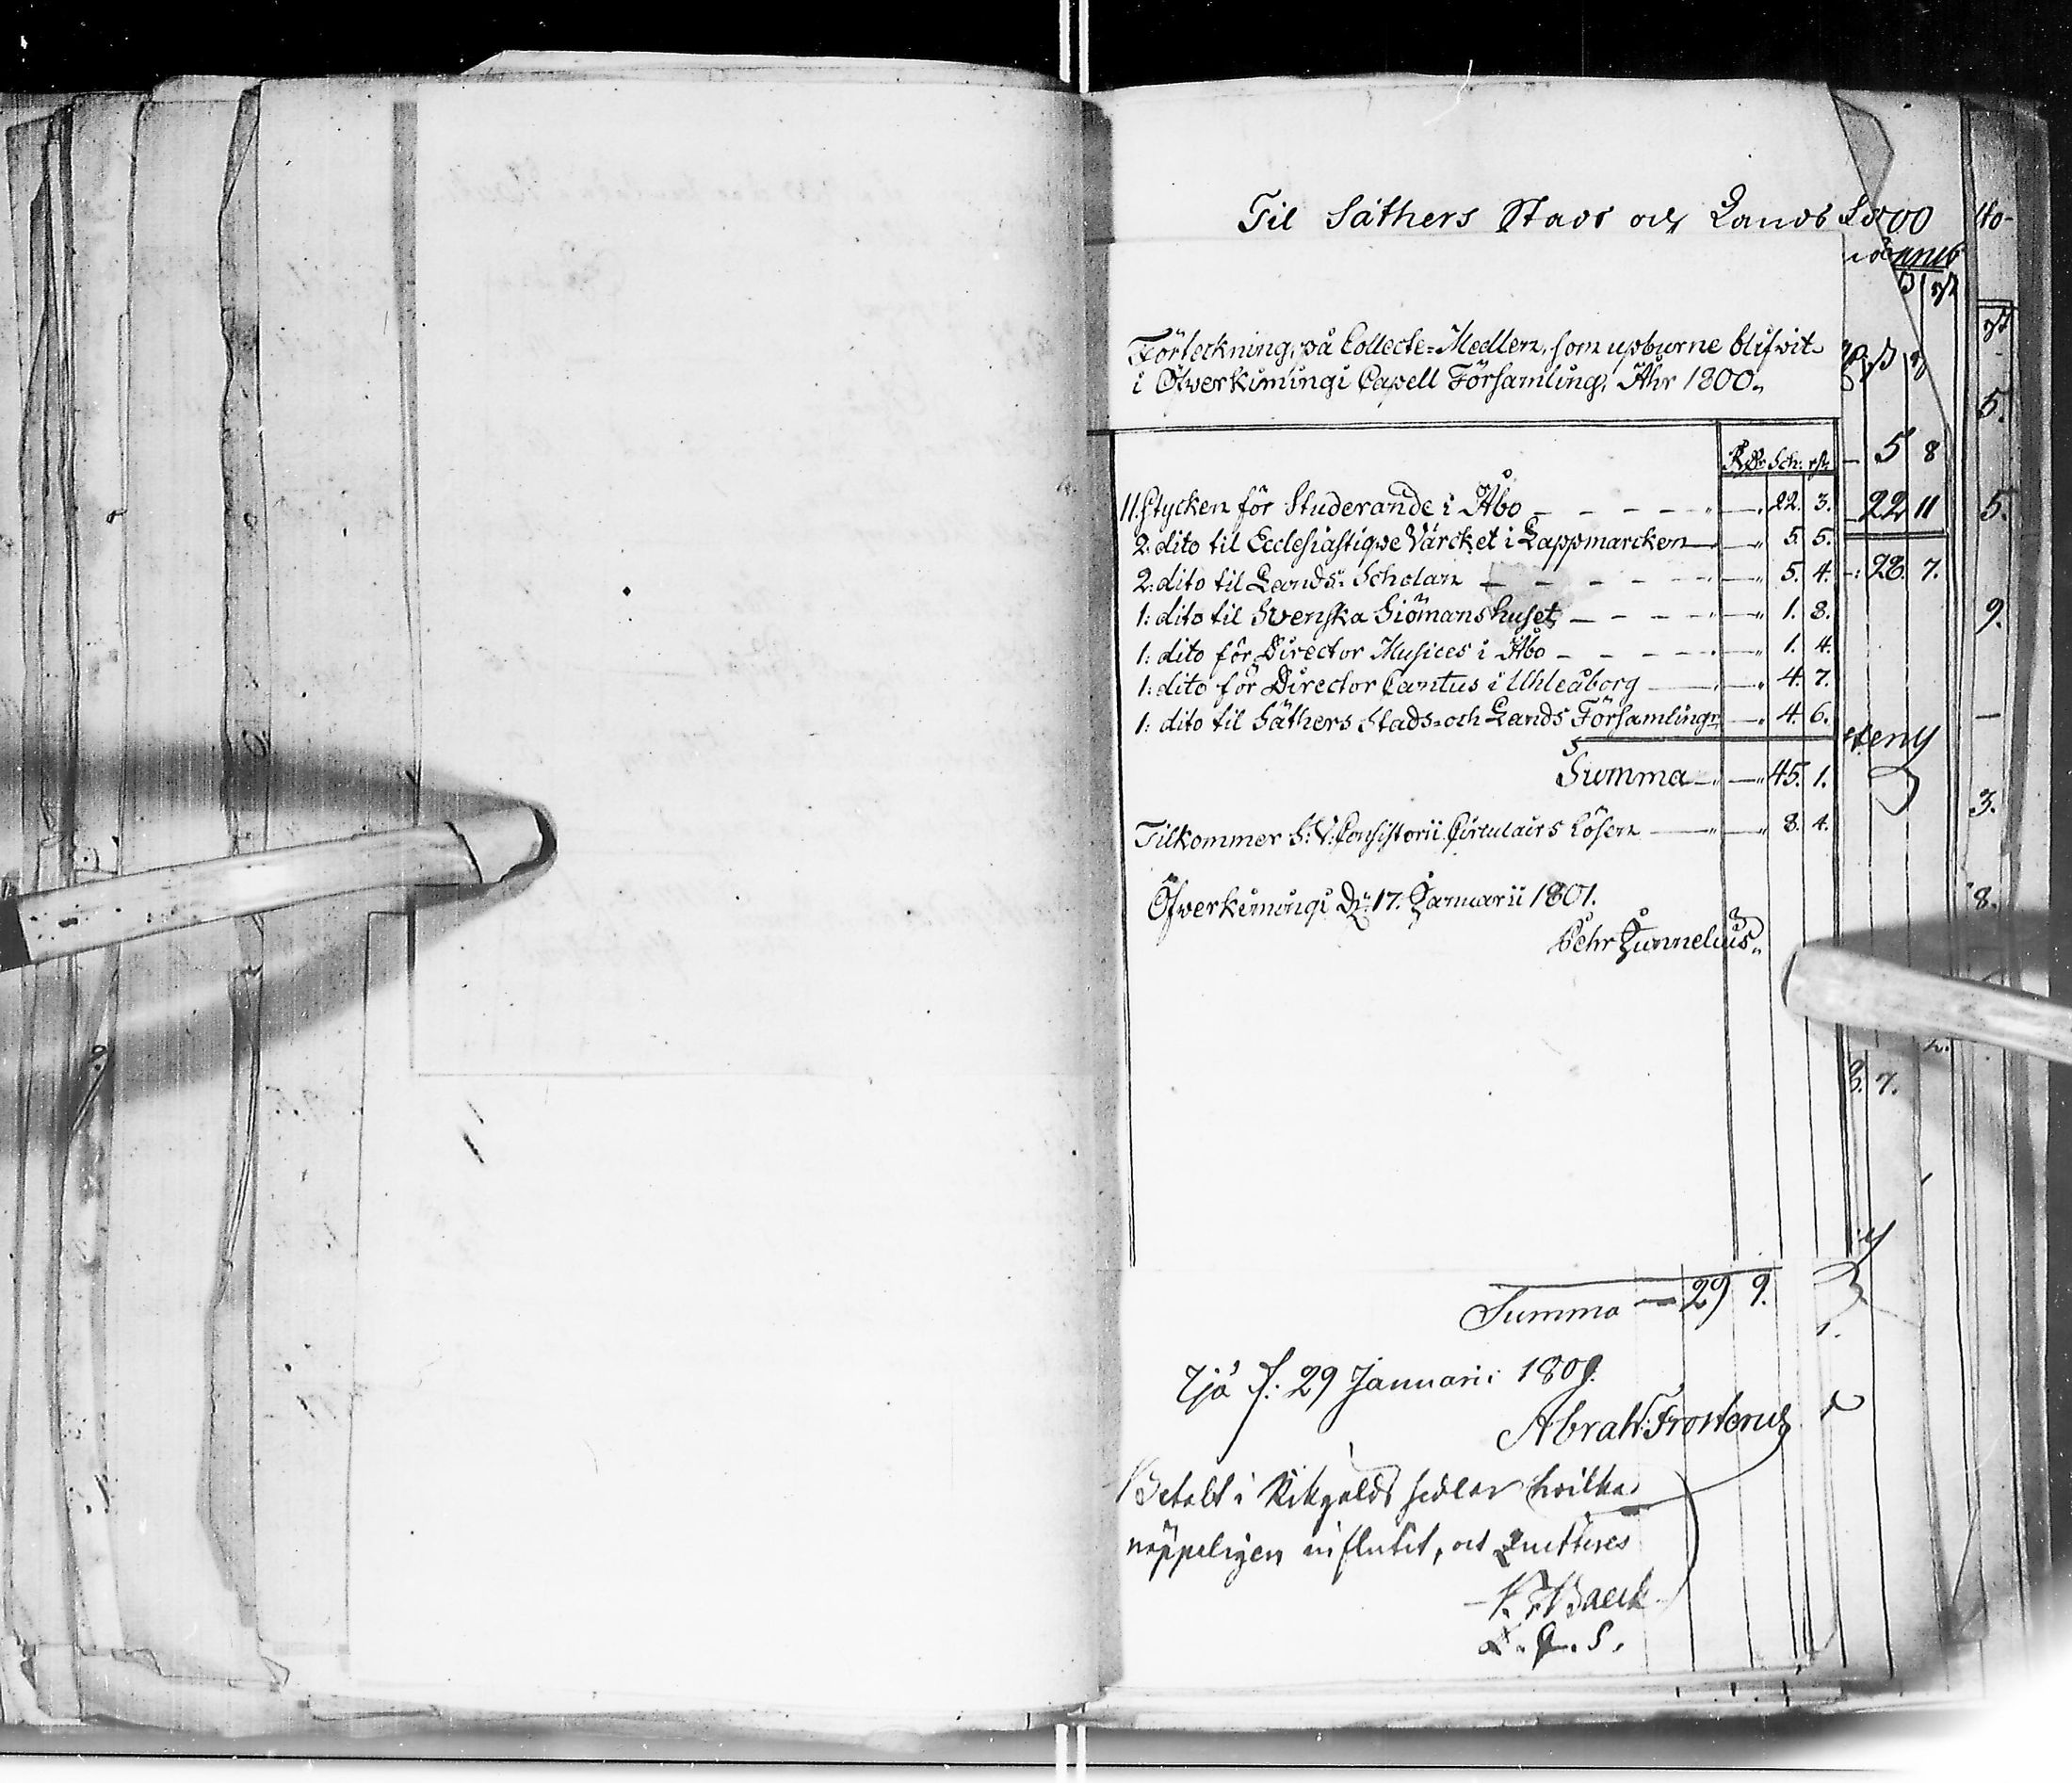 Til Säthers Stads och Lands
Förteckning, på Collecte-Medlen, som upburne blifvit
i Öfverkimingi Capell Församling, Åhr 1800.
RD: Sch: rst:
11. Stycken för Studerande i Åbo — 22. 3.
2: dito til Ecclesiastiqve Värcket i Lappmarcken — 5. 5.
2: dito til Lands-Scholan — 5. 4.
1: dito til Svenska Siömanshuset — 1. 8.
1: dito för Director Musices i Åbo — 1. 4.
1: dito för Director Cantus i Uhleåborg — 4. 7.
1: dito til Säthers Stads-och Lands Församling — 4. 6.
Summa — 45. 1.
Tilkommer S: V: Consistorii Circulairs Lösen — 8. 4.
Öfverkimingi D: 17. Januarii 1801.
Pehr Junnelius
5 8
22 11
28. 7.
Summa — 29 9.
Ijå d: 29 Januarii 1801.
Abrah: Frosterus
Betalt i Rikgälds sedlar hvilka
näppeligen influtit, och quitteres
Baeck
L. q. S.